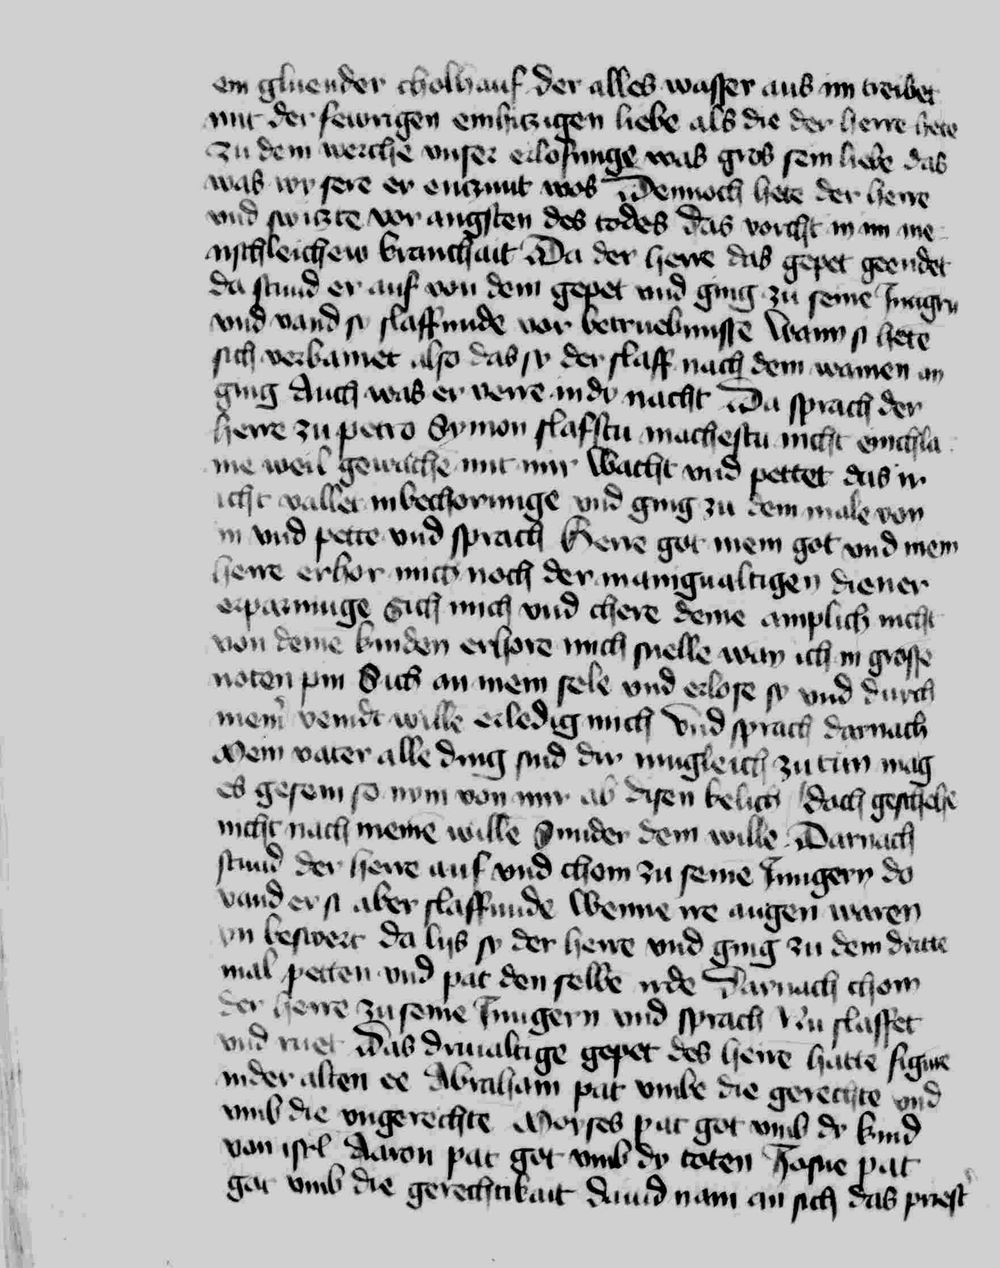 ein gluender cholhauf der alles wasser aus im treibet
mit der fewrigen einhiczigen liebe als die der herre hete
zu dem werche unser erlosunge was gros sein liebe das
was wy sere er enczunt wos Dennoch hete der herre
und swiczte vor angsten des todes das vorcht in im me
nschleichew kranchait Da der herre das gepet geendet
da stund er auf von dem gepet und ging zu seine Jungrn
und vand sy slaffunde vor betruebnusse Wann si hete
sich verbainet also das sy der slaff nach dem wainen an
ging Auch was er verre in dy nacht Da sprach der
herre zu petro Symon slafstu machestu nicht einchla
ine weil gewache mit mir Wacht und pettet das ir
icht vallet in bechorunge und ging zu dem male von
in und pette und sprach Herre got mein got und mein
herre erhor mich noch der manigualtigen diener
erparmuge Sich mich und chere deine amplich nicht
von deine kinden erhore mich snelle wan ich in grosse
noten pin Sich an mein sele und erlose sy und durch
meiner veindt wille erledig mich Und sprach darnach
Mein vater alle ding sind dir mugleich zu tun mag
es gesein so nym von mir ab disen kelich doch geschehe
nicht nach meine wille Sunder dein wille Darnach
stund der herre auf und chom zu seine Jungern do
vand er si aber slaffunde Wenne ire augen waren
yn beswert da lyes sy der herre und ging zu dem dritte
mal petten und pat den selbe rede Darnach chom
der herre zu seine Jungern und sprach Nu slaffet
und ruet Das driualtige gepet des herre hatte figure
in der alten ee Abraham pat umbe die gerechte und
umb die ungerechte Moyses pat got umb dy kind
von isrl Aaron pat got umb dy toten Josue pat
got umb die gerechtikait dauid nam an sich das priest